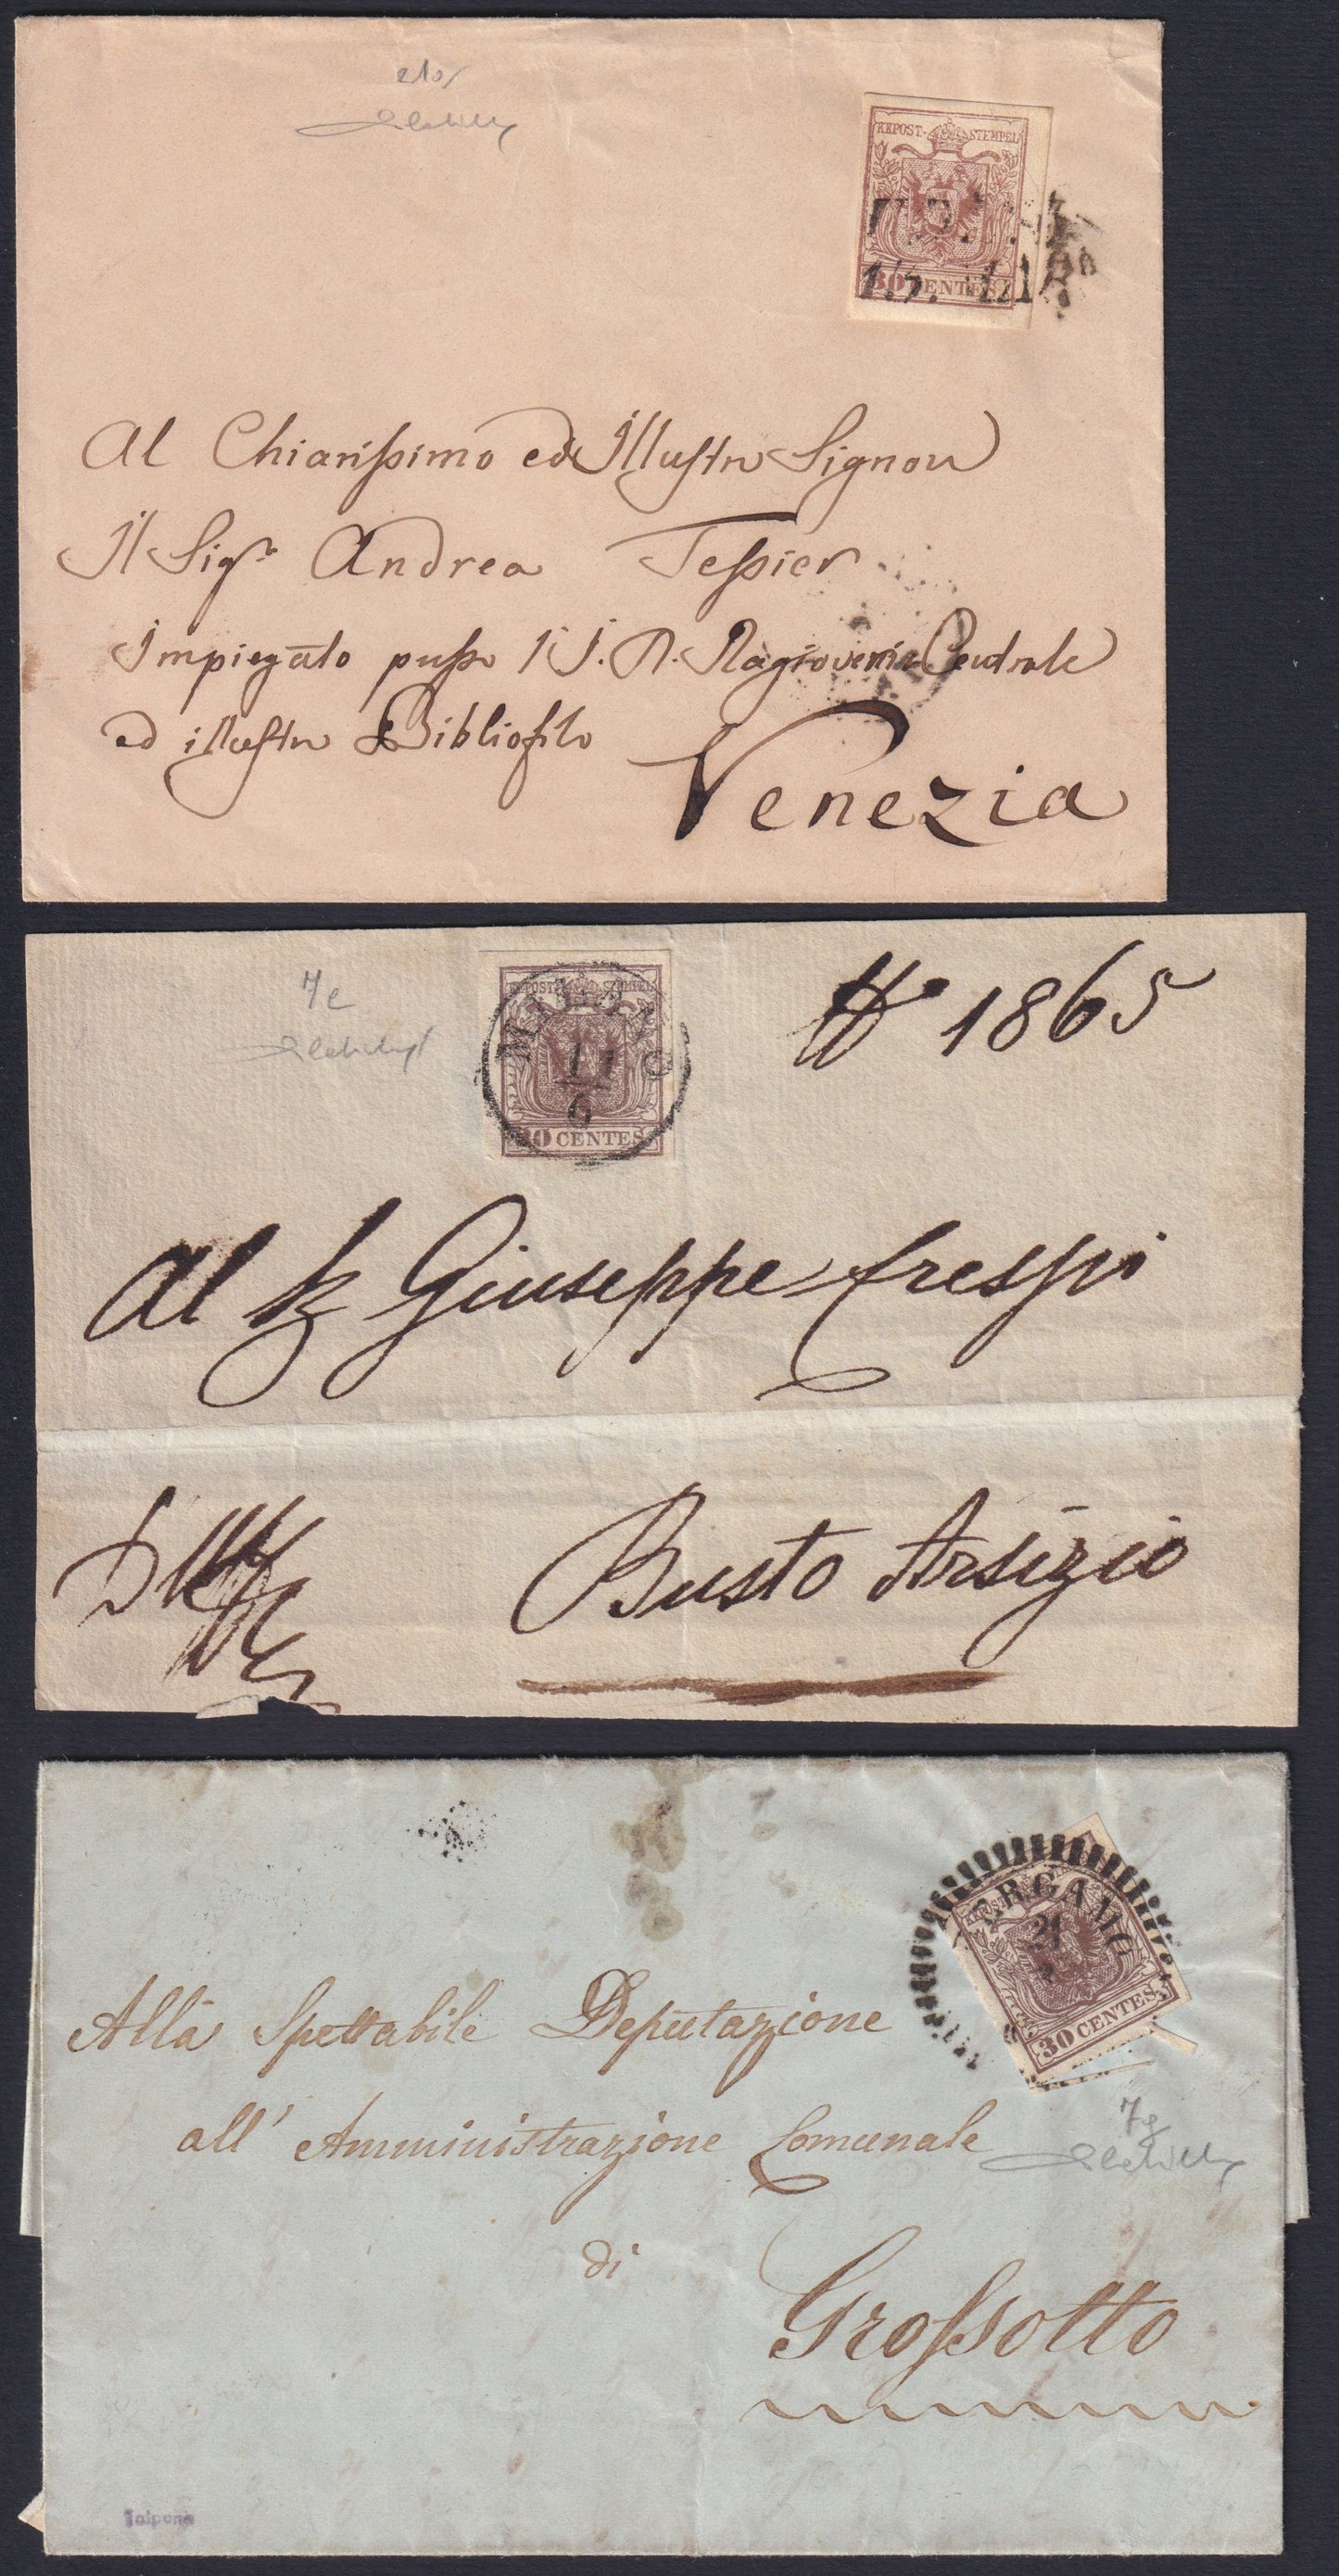 REPOST-STEMPEL
30 CENTES.
Al Chiarissimo ed Illustre Signore
Il Sigr. Andrea Tessier
Impiegato presso l'I. R. Ragioneria Centrale
ed illustre Bibliofilo
Venezia
7e
REPOST STEMPEL
MILANO
11
6
30 CENTES.
No 1865
Al Sig Giuseppe Crespi
Busto Arsizio
BERGAMO
21
30 CENTES.
Alla Spettabile Deputazione
all' Amministrazione Comunale
7g
di
Grossotto